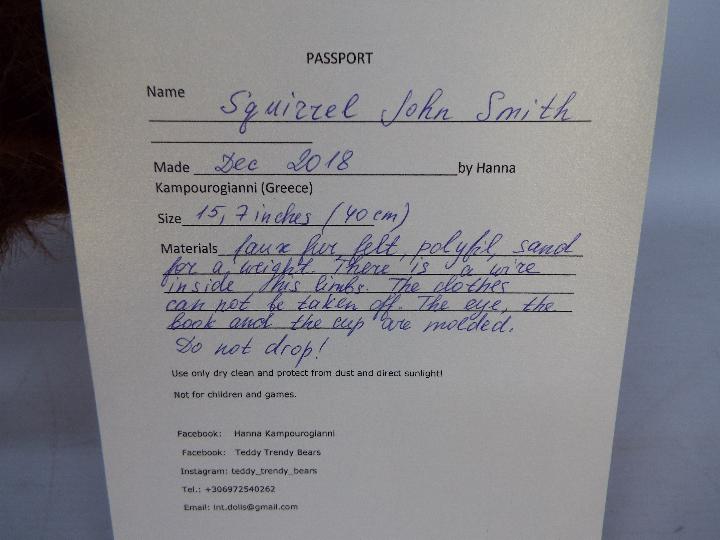 PASSPORT
Name Squirrel John Smith
Made Dec 2018 by Hanna
Kampourogianni (Greece)
Size 15,7 inches (40 cm)
Materials faux fur, felt, polyfil, sand
for a weight. There is a wire
inside his limbs. The clothes
can not be taken off. The eye, the
book and the cup are molded.
Do not drop!
Use only dry clean and protect from dust and direct sunlight!
Not for children and games.
Facebook: Hanna Kampourogianni
Facebook: Teddy Trendy Bears
Instagram: teddy_trendy_bears
Tel.: +306972540262
Email: int.dolls@gmail.com